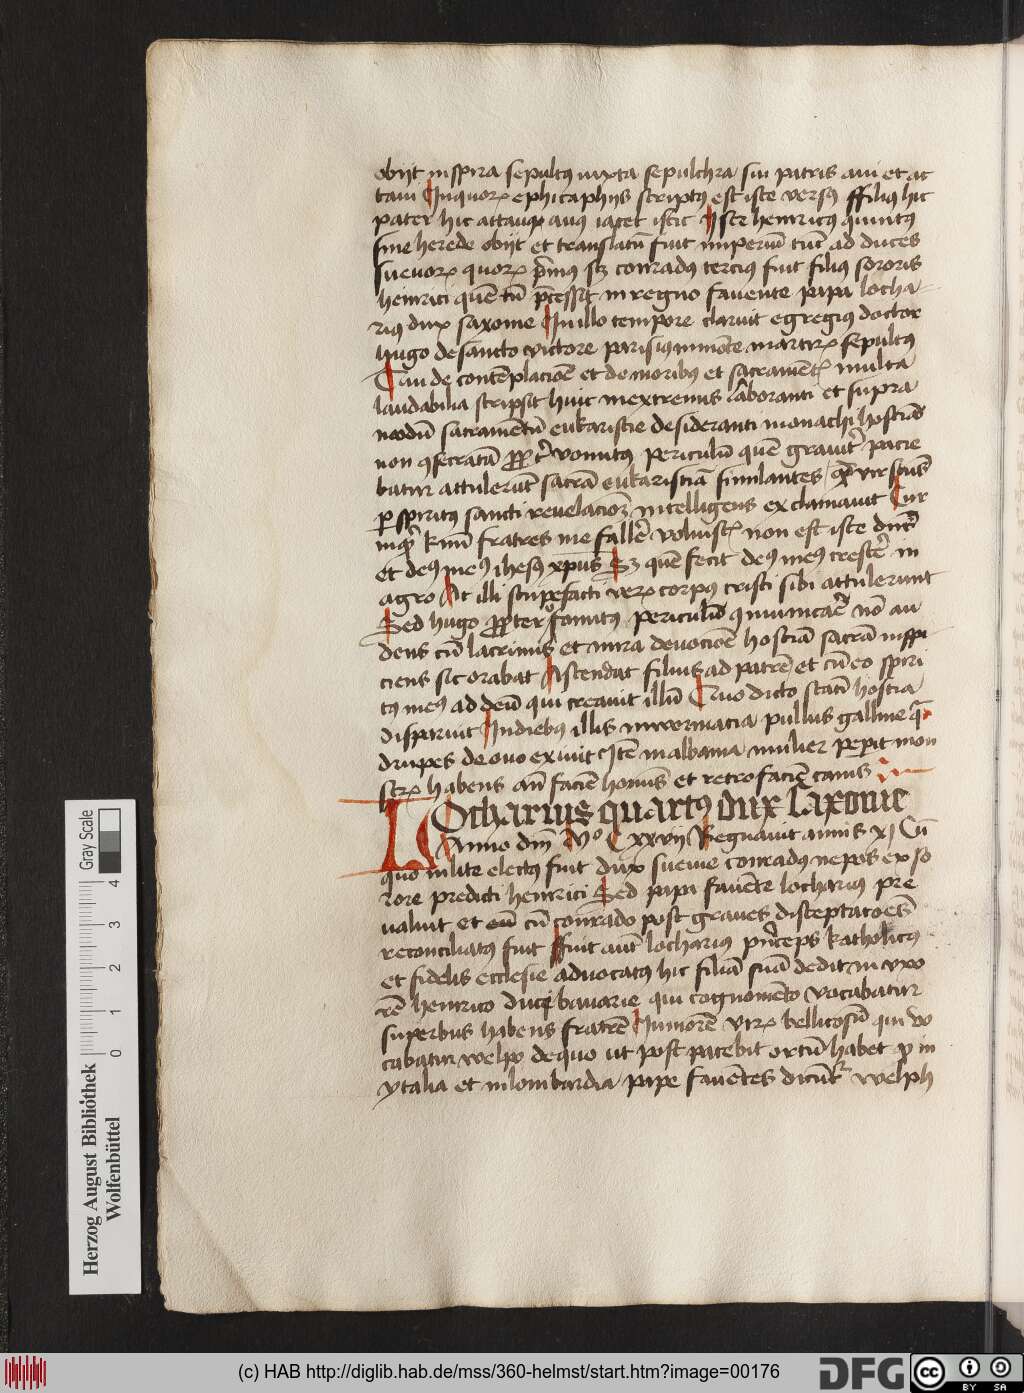 obijt in spira sepultꝰ iuxta sepulchra sui patris aui et at
taui In quorꝝ ephitaphijs scriptꝰ est iste versꝰ ffiliꝰ hic
pater hic attauꝰ auus iacet istic Iste henricꝰ quintꝰ
sine herede obijt et translatū fuit imperiū tūc ad duces
sueuorꝝ quorꝝ p̄mus scꝫ conradꝰ tercius fuit filiꝰ sororis
heinrici quē tn̄ p̄cessit in regno fauente papa locha
riꝰ dux saxonie In illo tempore claruit egregiꝰ doctor
hugo de sancto victore parisiꝰ in mōte martirꝝ sepultꝰ
Qui de contēplacioē et de moribꝰ et sacramētꝭ multa
laudabilia scripsit huic in extremis laboranti et supra
modū sacramētū eukaristie desideranti monachi hostiā
non ꝯsecratā ꝓpt̄ vomitꝰ periculū quē grauit̄ pacie
batur attulerūt sacrā eukaristiā simulantes qd̄ vir scūs
ꝑ spiritꝰ sancti reuelacioꝫ intelligens exclamauit Cur
inqt̄ kmī fratres me fallē voluistꝭ non est iste dn̄s
et deꝰ meꝰ ihesꝰ xpūs Sꝫ quē fecit deꝰ meꝰ crescē in
agro At illi stupefacti verꝝ corpꝰ cristi sibi attulerunt
Sed hugo ꝓpter vomitꝰ periculū ꝯmunicāe nō au
dens cū lacrimis et mira deuocioē hostiā sacrā inspi
ciens sic orabat Ascendat filius ad patrē et cū eo spiri
tꝰ meꝰ ad deū qui creauit illū Quo dicto statī hostia
disparuit In diebꝰ illis in wormacia pullus galline qua
drupes de ouo exiuit Itē in albania mulier peperit mon
strꝝ habens an̄ faciē homīs et retro faciē canis
Locharius quartꝰ dux Saxonie
Anno dn̄i Mº Cxxvij Regnauit annis xj Cū
quo in lite electꝰ fuit dux sueuie conradꝰ nepos ex so
rore predicti henrici Sed papa fauēte locharius pre
ualuit et eū cū conrado post graues disceptatoēs
reconciliatꝰ fuit ffuit aut̄ locharius pn̄ceps katholicꝰ
et fidelis ecclesie aduocatꝰ hic filiā suā dedit in vxo
rē henrico duci bauarie qui cognomēto vocabatur
superbus habens fratrē Iuniorē virꝝ bellicosū qui vo
cabatur welpo de quo ut post patebit ortū habet ꝙ in
ytalia et in lombardia pape fauētes dicūtꝛ welph
Gray Scale
0 1 2 3 4
Herzog August Bibliothek
Wolfenbüttel
(c) HAB http://diglib.hab.de/mss/360-helmst/start.htm?image=00176
DFG
cc
BY SA